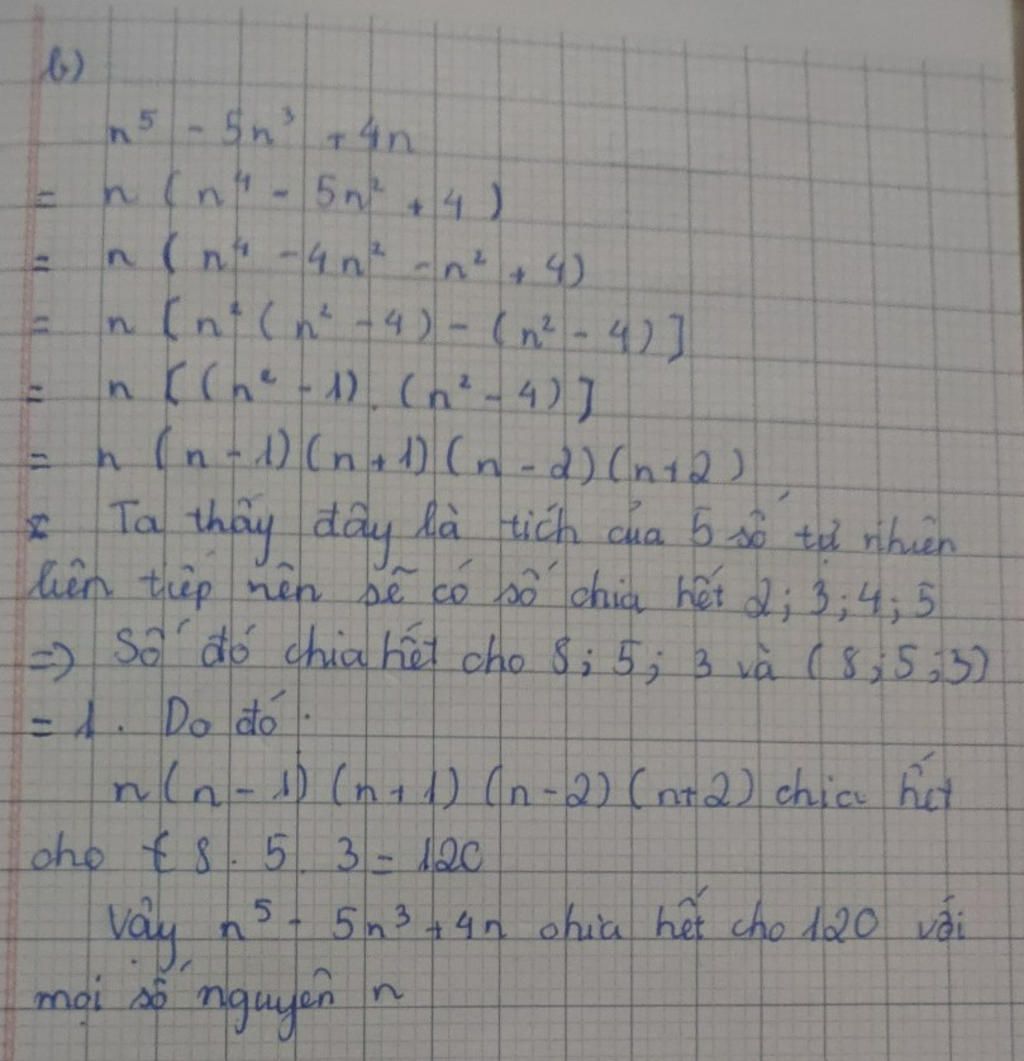 b)
n⁵ - 5n³ + 4n
= n (n⁴ - 5n² + 4)
= n (n⁴ - 4n² - n² + 4)
= n [n² (n² - 4) - (n² - 4)]
= n [(n² - 1) . (n² - 4)]
= n (n - 1)(n + 1)(n - 2)(n + 2)
Ta thấy đây là tích của 5 số tự nhiên
liên tiếp nên sẽ có số chia hết 2; 3; 4; 5
=> Số đó chia hết cho 8; 5; 3 và (8; 5; 3)
= 1. Do đó
n (n - 1) (n + 1) (n - 2) (n + 2) chia hết
cho 8 . 5 . 3 = 120
Vậy n⁵ - 5n³ + 4n chia hết cho 120 với
mọi số nguyên n